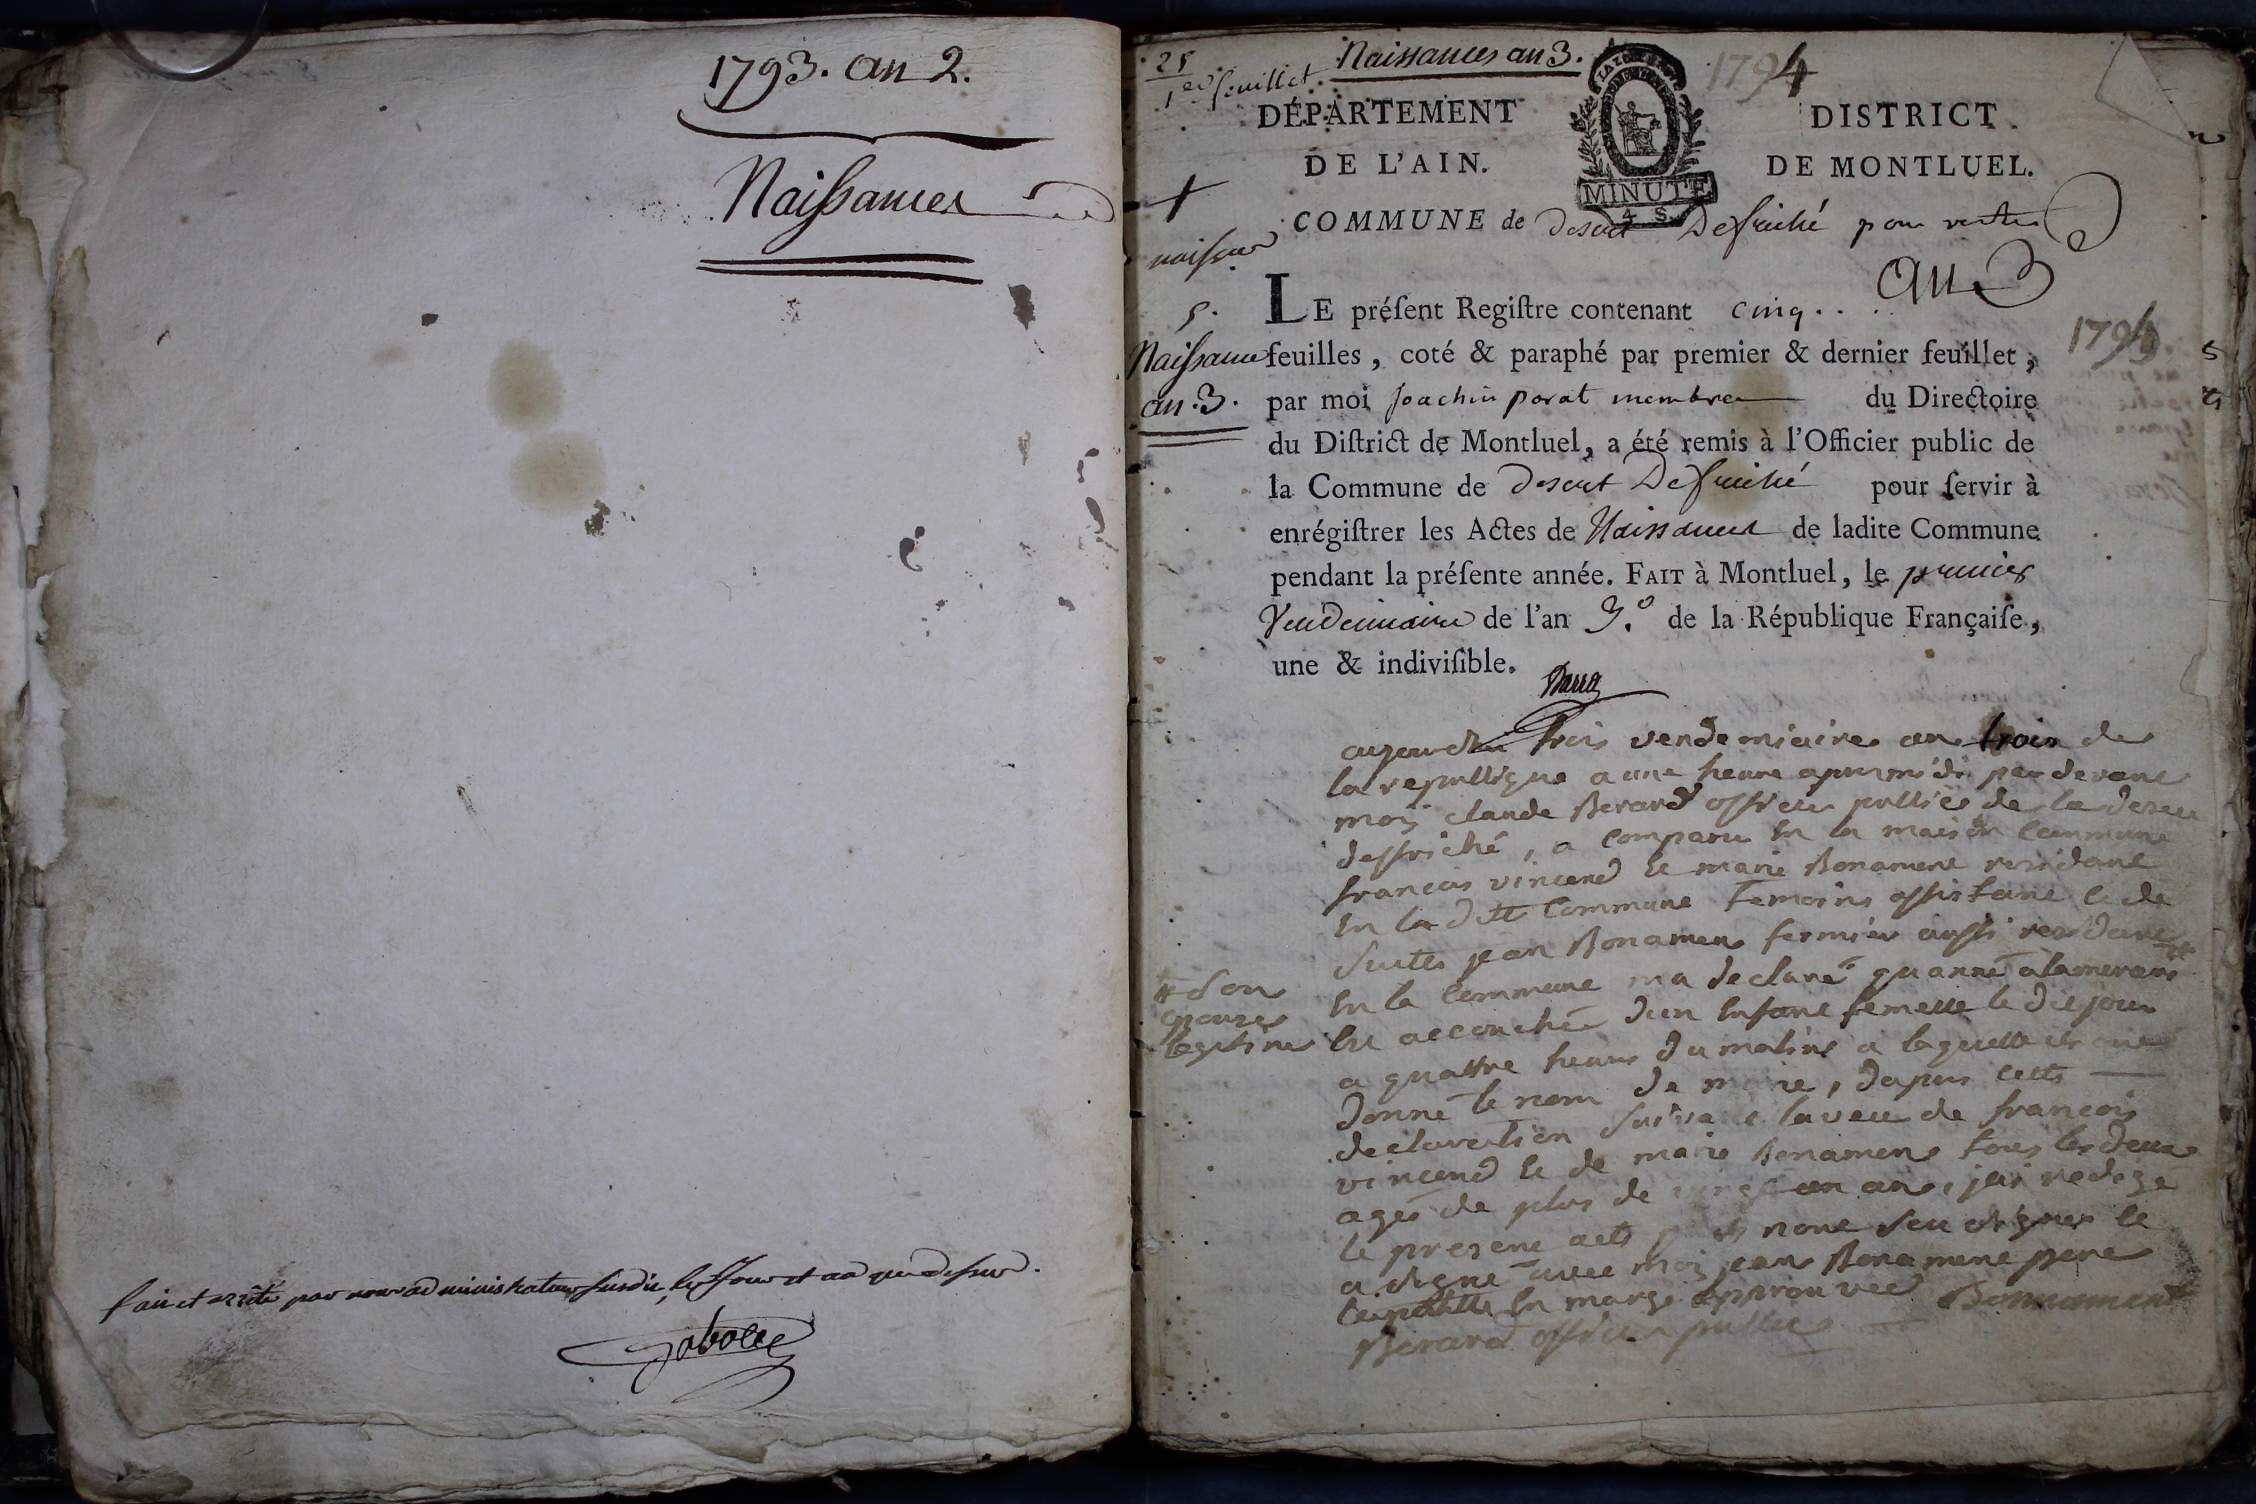 1793. an 2.
Naissances
Fait et arrêté par nous administrateur susdit, les jour et an que dessus.
25
1er feuillet
Naissances an 3.
1794
DÉPARTEMENT
DE L'AIN.
DISTRICT
DE MONTLUEL.
MINUTE
4 S
COMMUNE de desert Defriché pour
naissance
an 3
5.
Naissance
an. 3.
1794
LE préſent Regiſtre contenant cinq
feuilles, coté & paraphé par premier & dernier feuillet,
par moi Joachin porat membre du Directoire
du Diſtrict de Montluel, a été remis à l'Officier public de
la Commune de desert Defriché pour ſervir à
enrégiſtrer les Actes de Naissances de ladite Commune
pendant la préſente année. FAIT à Montluel, le premier
Vendemiaire de l'an 3.e de la République Françaiſe,
une & indiviſible.
aujourdhui trois vendemiaire an trois de
la republique a une heure apres midi par devant
moi claude Berard officier public de la
deffriché, a comparu en la maison commune
francois vincend et marie Bonament residant
en la ditte commune temoins assistant et de
suitte jean Bonament fermier aussi residant
en la commune ma declaré qu anne
est accouché d'un enfant femelle le dit jour
a quattre heure du matins a laquelle ils ont
donné le nom de marie, dapres cette
declaration suivant laveu de francois
vincend et de marie Bonament tous les deux
agés de plus de vingt un ans, jai redigé
le present acte nont seu signer et
a signé avec moi jean Bonament pere
en marge approuvée Bonnament
Berard officier public
# son
epouze
legitime